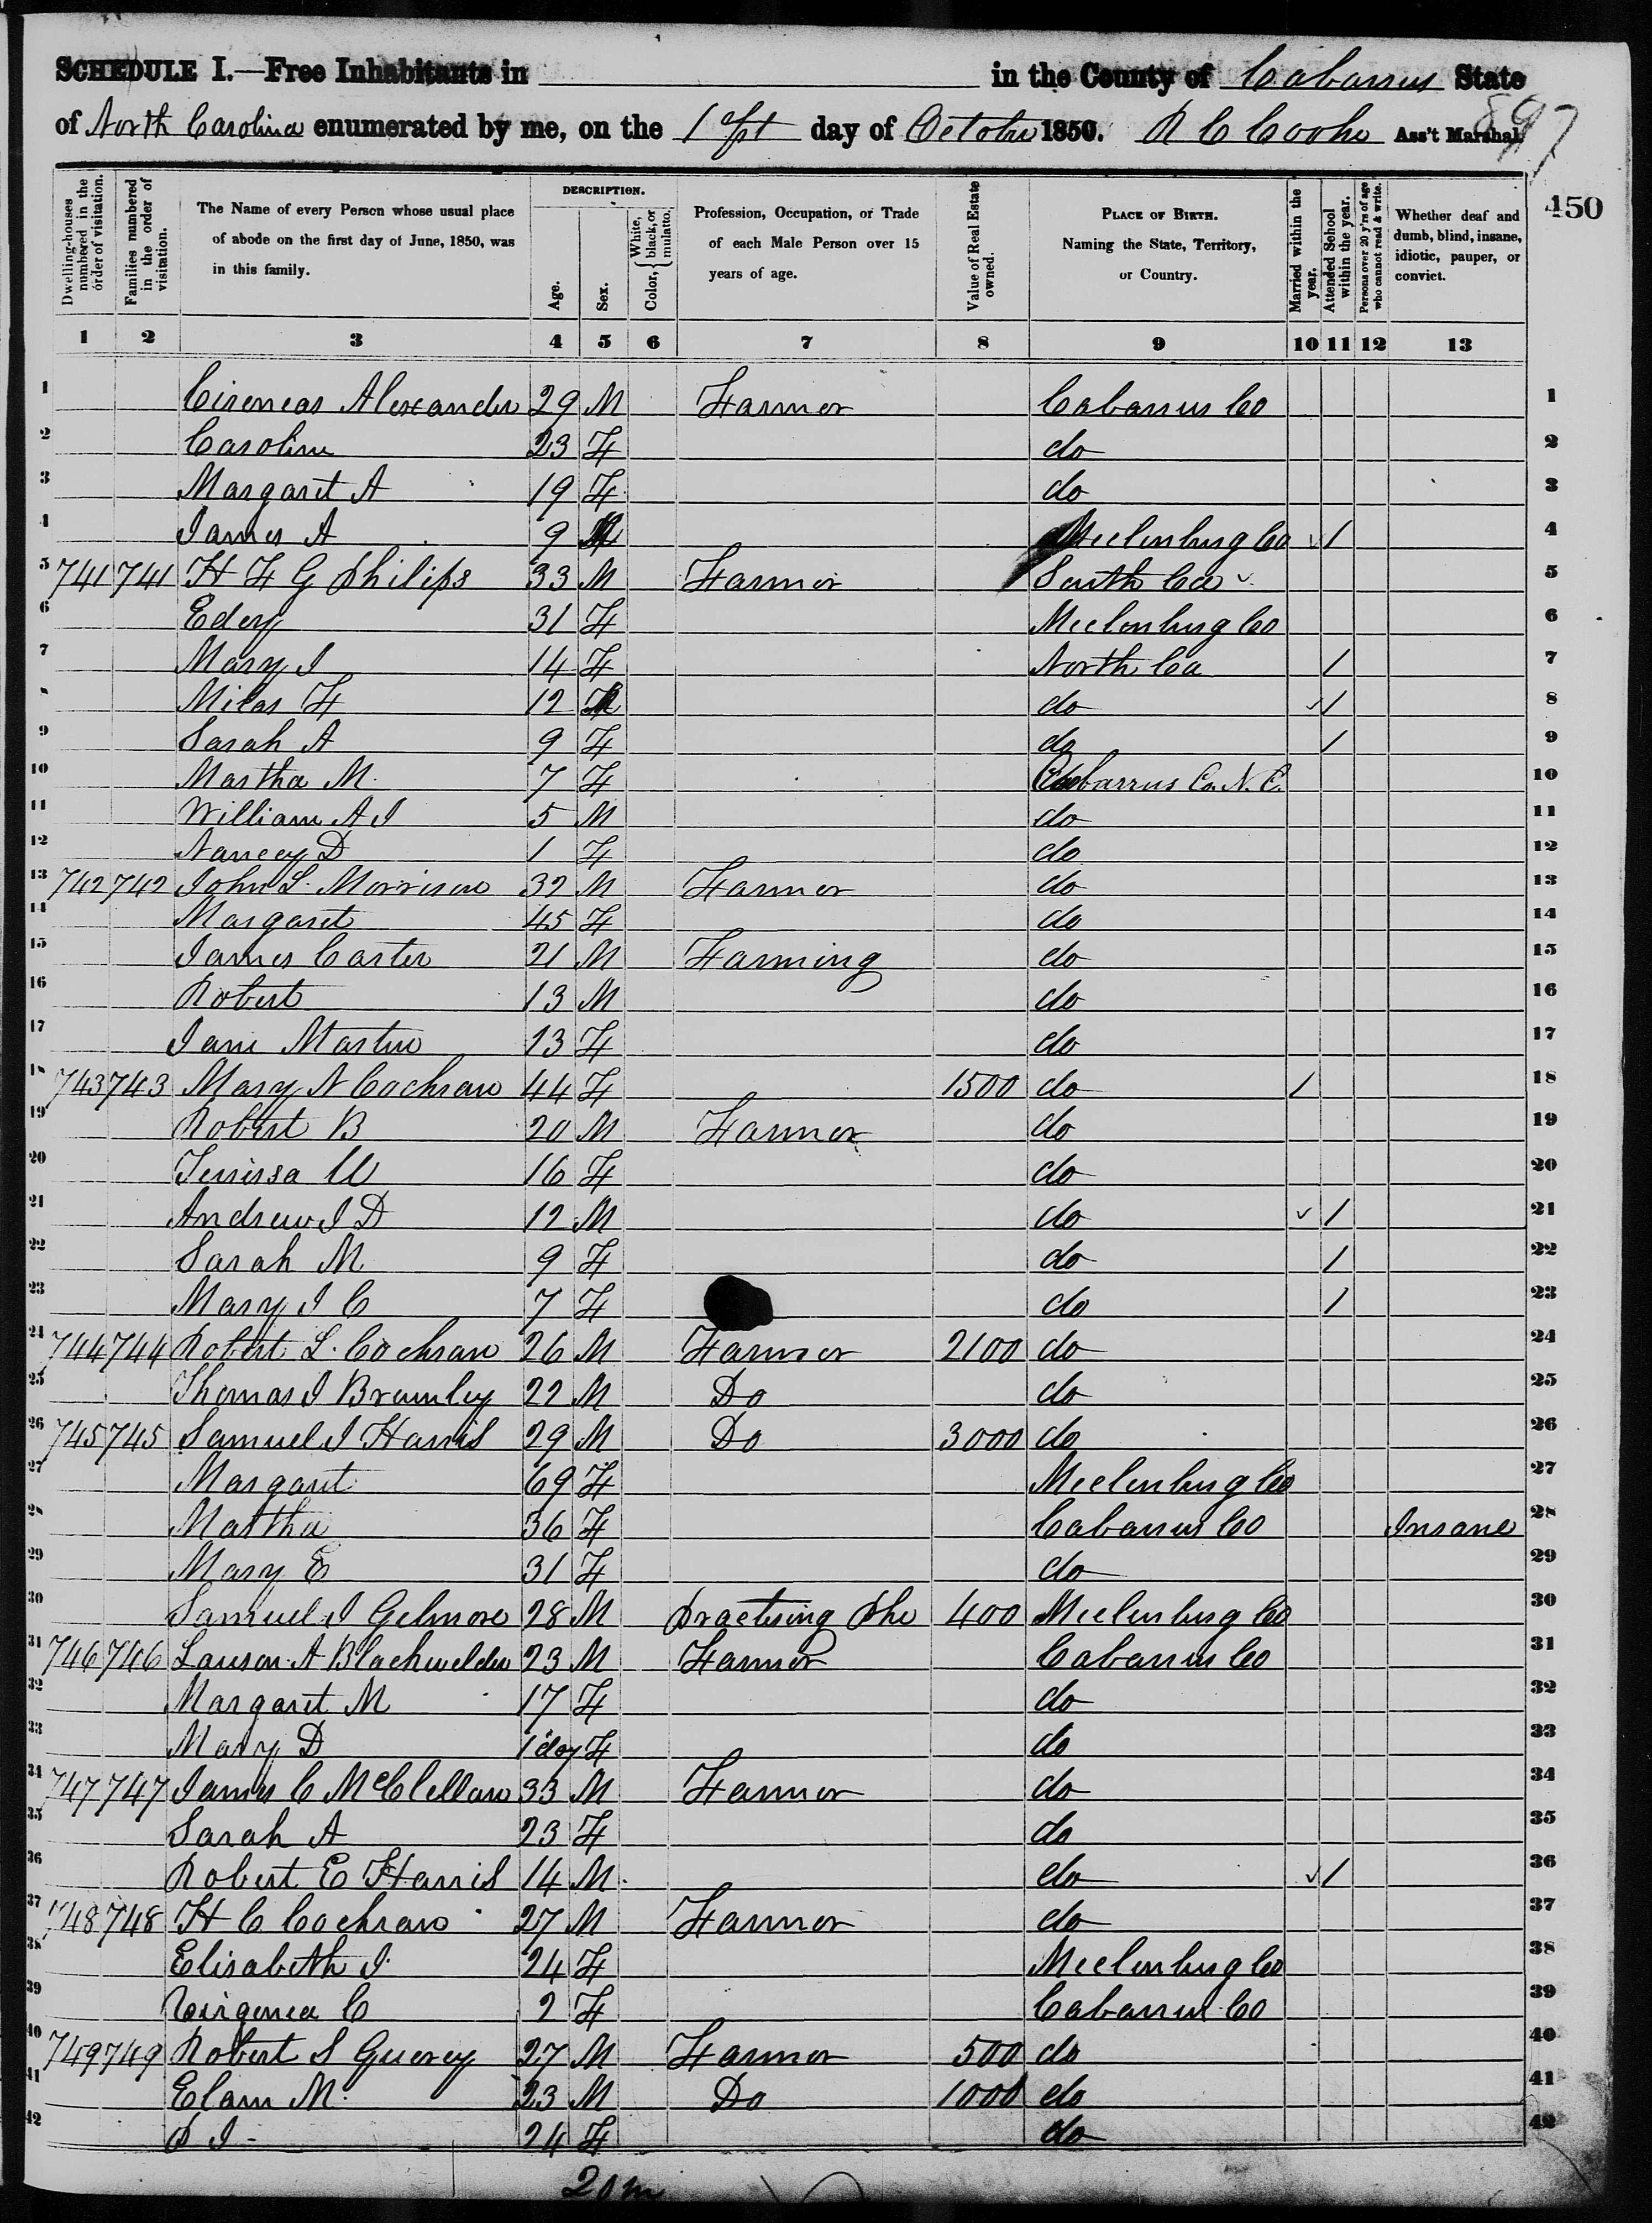 SCHEDULE I.—Free Inhabitants in in the County of Cabarrus State
of North Carolina enumerated by me, on the 1st day of October 1850. R C Cooke Ass't Marshal.
897
450
Dwelling-houses numbered in the order of visitation.
Families numbered in the order of visitation.
The Name of every Person whose usual place of abode on the first day of June, 1850, was in this family.
DESCRIPTION.
Age.
Sex.
Color, { White, black, or mulatto.
Profession, Occupation, or Trade of each Male Person over 15 years of age.
Value of Real Estate owned.
PLACE OF BIRTH. Naming the State, Territory, or Country.
Married within the year.
Attended School within the year.
Persons over 20 y'rs of age who cannot read & write.
Whether deaf and dumb, blind, insane, idiotic, pauper, or convict.
1 2 3 4 5 6 7 8 9 10 11 12 13
1 Cireneas Alexander 29 M Farmer Cabarrus Co 1
2 Caroline 23 F do 2
3 Margaret A 19 F do 3
4 James A 9 M Meclenburg Co ✓ / 4
5 741 741 H F G Philips 33 M Farmer South Ca ✓ 5
6 Edey 31 F Meclenburg Co 6
7 Mary J 14 F North Ca / 7
8 Milas F 12 M do ✓ / 8
9 Sarah A 9 F do / 9
10 Martha M. 7 F Cabarrus Co. N. C. 10
11 William A J 5 M do 11
12 Nancy D 1 F do 12
13 742 742 John L. Morrison 32 M Farmer do 13
14 Margaret 45 F do 14
15 James Carter 21 M Farming do 15
16 Robert 13 M do 16
17 Jane Martin 13 F do 17
18 743 743 Mary N Cochran 44 F 1500 do / 18
19 Robert B 20 M Farmer do 19
20 16 F do 20
21 Andrew J D 12 M do ✓ / 21
22 Sarah M 9 F do / 22
23 Mary J C 7 F do / 23
24 744 744 Robert L. Cochran 26 M Farmer 2100 do 24
25 Thomas J Brumley 22 M Do do 25
26 745 745 Samuel J Harris 29 M Do 3000 do 26
27 Margaret 69 F Meclenburg Co 27
28 Martha 36 F Cabarrus Co Insane 28
29 Mary E 31 F do 29
30 Samuel J Gelmore 28 M Practising Phe 400 Meclenburg Co 30
31 746 746 Lauson A Blackwelder 23 M Farmer Cabarrus Co 31
32 Margaret M 17 F do 32
33 Mary D 1 day F do 33
34 747 747 James C McClellan 33 M Farmer do 34
35 Sarah A 23 F do 35
36 Robert E Harris 14 M do ✓ / 36
37 748 748 H C Cochran 27 M Farmer do 37
38 Elisabeth J. 24 F Meclenburg Co 38
39 Virginea C 2 F Cabarrus Co 39
40 749 749 Robert S Querey 27 M Farmer 500 do 40
41 Elam M. 23 M Do 1000 do 41
42 P J - 24 F do 42
20 m